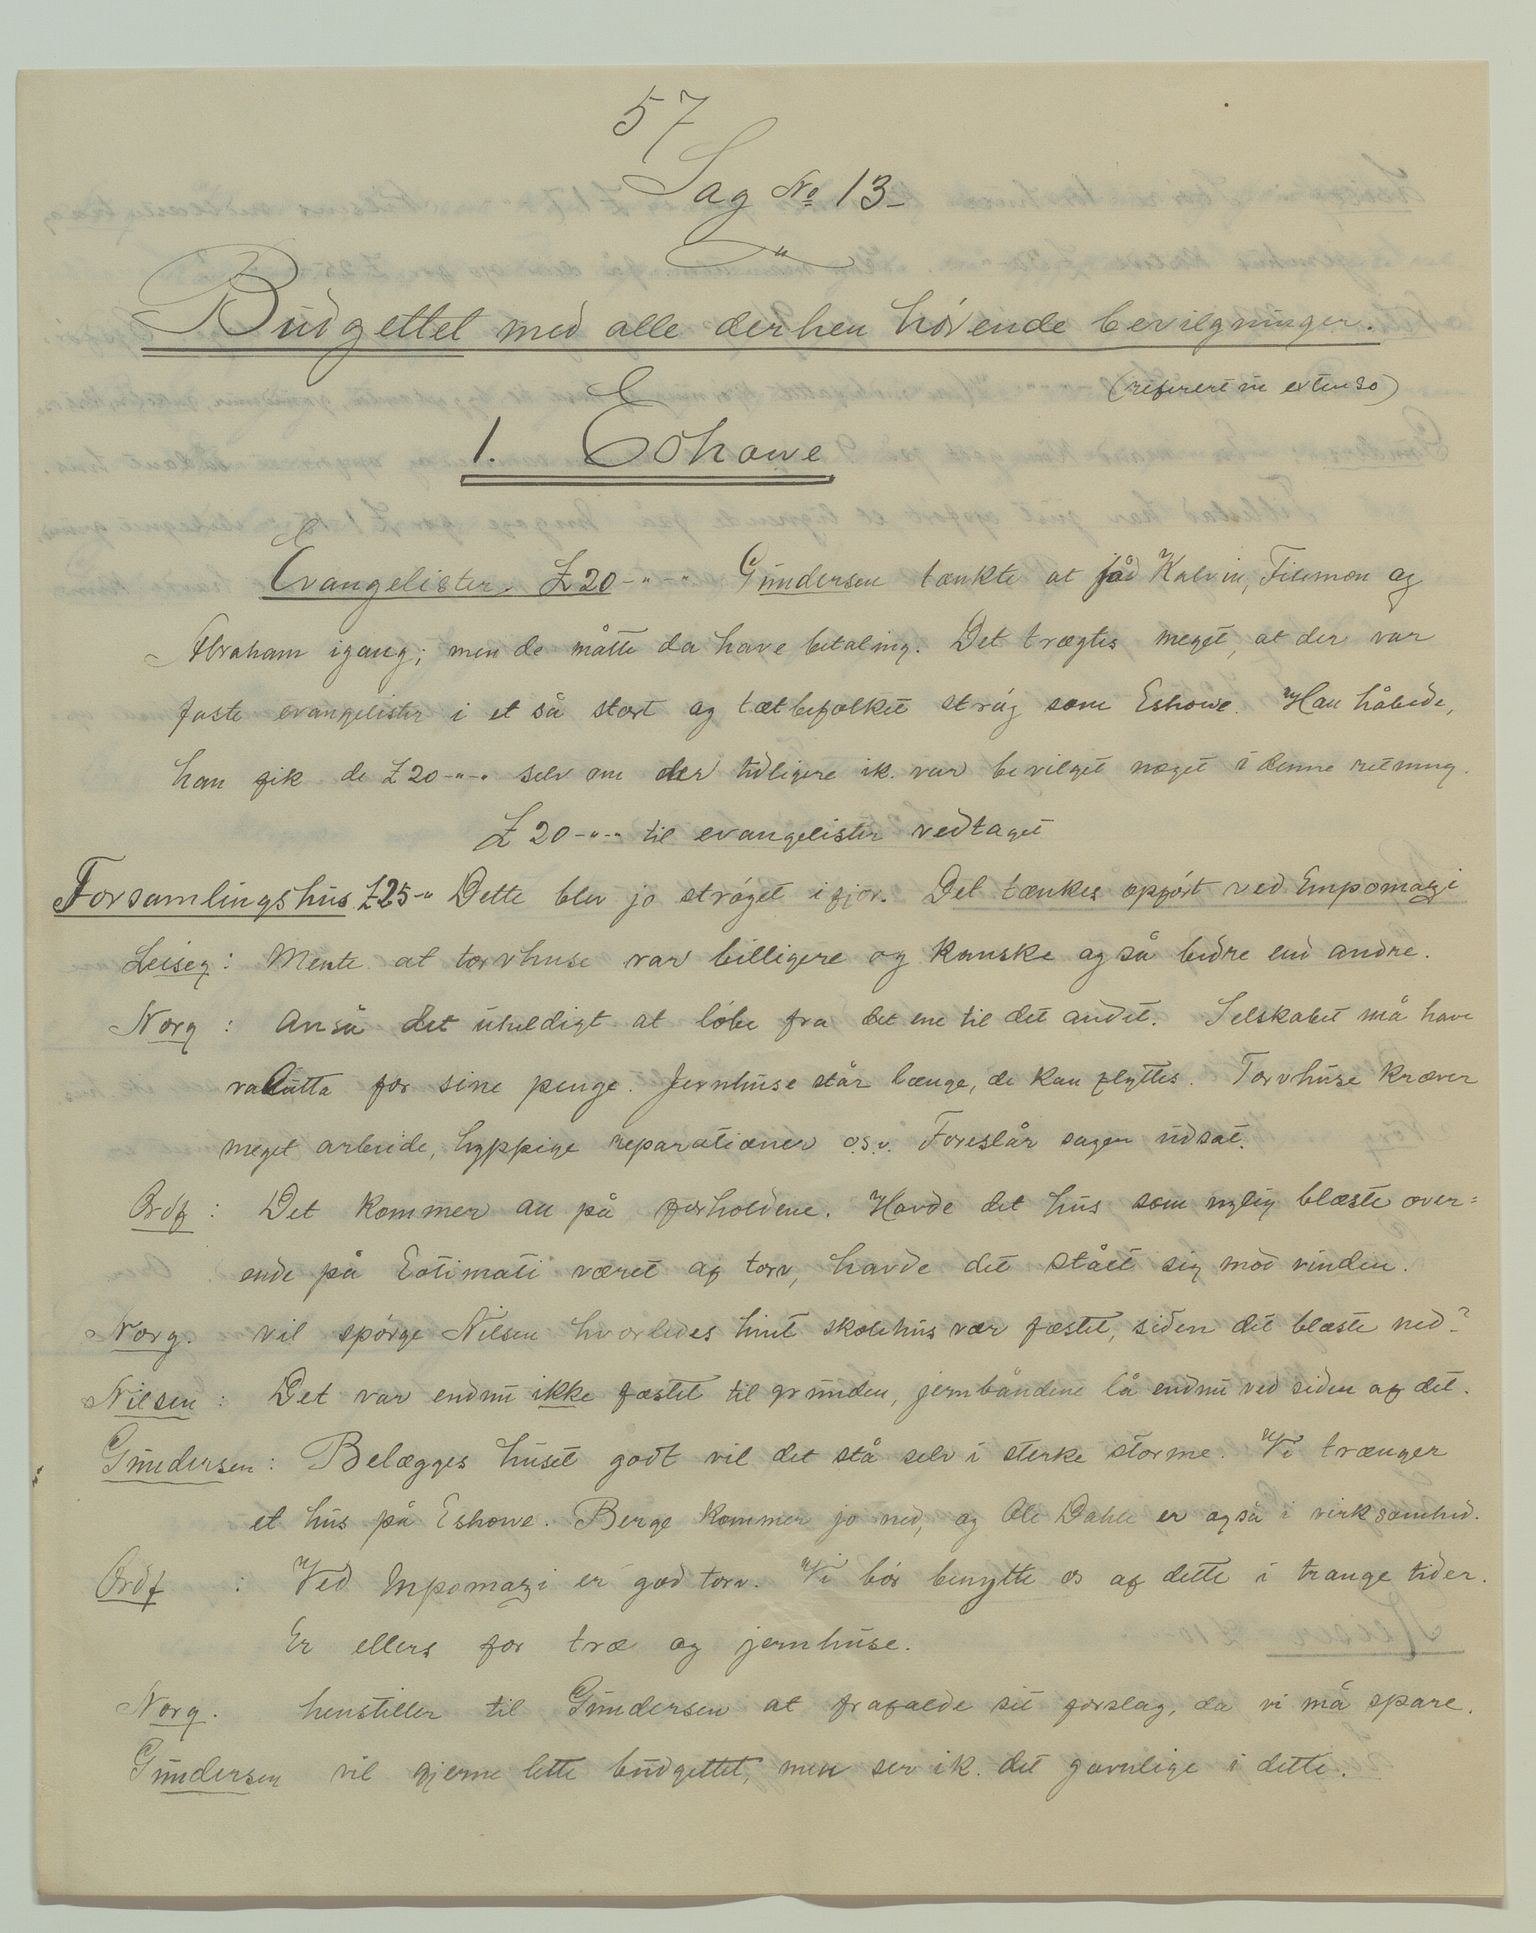 57
Sag No 13-
"
Budgettet med alle derhen hörende bevilgninger.
(refereret in extenso)
1. Eshowe
Evangelister. £20-"-" Gundersen tænkte at få Kalvin, Filemon og
Abraham igang; men de måtte da have betaling. Det trægtes meget, at der var
faste evangelister i et så stort og tætbefolket ströğ som Eshowe. Han håbede,
han fik de £20-"-" selv om der tidligere ik. var bevilget noget i denne retning.
£20-"-" til evangelister vedtaget
Forsamlingshus £25-" Dette blev jo ströget ifjor. Det tænkes opfört ved Empomazi
Leiseg: Mente at torvhuse var billigere og kanske også bedre end andre.
Norg: Anså det uheldigt at löbe fra det ene til det andet. Selskabet må have
valutta for sine penge. Jernhuse står længe, de kan flyttes. Torvhuse kræver
meget arbeide, hyppige reparationer o.s.v. Foreslår sagen udsat.
Ordf: Det kommer an på forholdene. Havde det hus som nylig blæste over=
ende på Eotimati været af torv, havde det stået sig mod vinden.
Norg. vil spörge Nilsen hvorledes hint skolehus var fæstet, siden det blæste ned?
Nilsen: Det var endnu ikke fæstet til grunden, jernbåndene lå endnu ved siden af det.
Gundersen: Belægges huset godt vil det stå selv i sterke storme. Vi trænger
et hus på Eshowe. Berge kommer jo ned, og Ole Dahle er også i virksomhed.
Ordf: Ved Mpomazi er god torv. Vi bör benytte os af dette i trange tider.
Er ellers for træ og jernhuse.
Norg. henstiller til Gundersen at frafalde sit forslag, da vi må spare.
Gundersen vil gjerne lette budgettet, men ser ik. det gavnlige i dette.